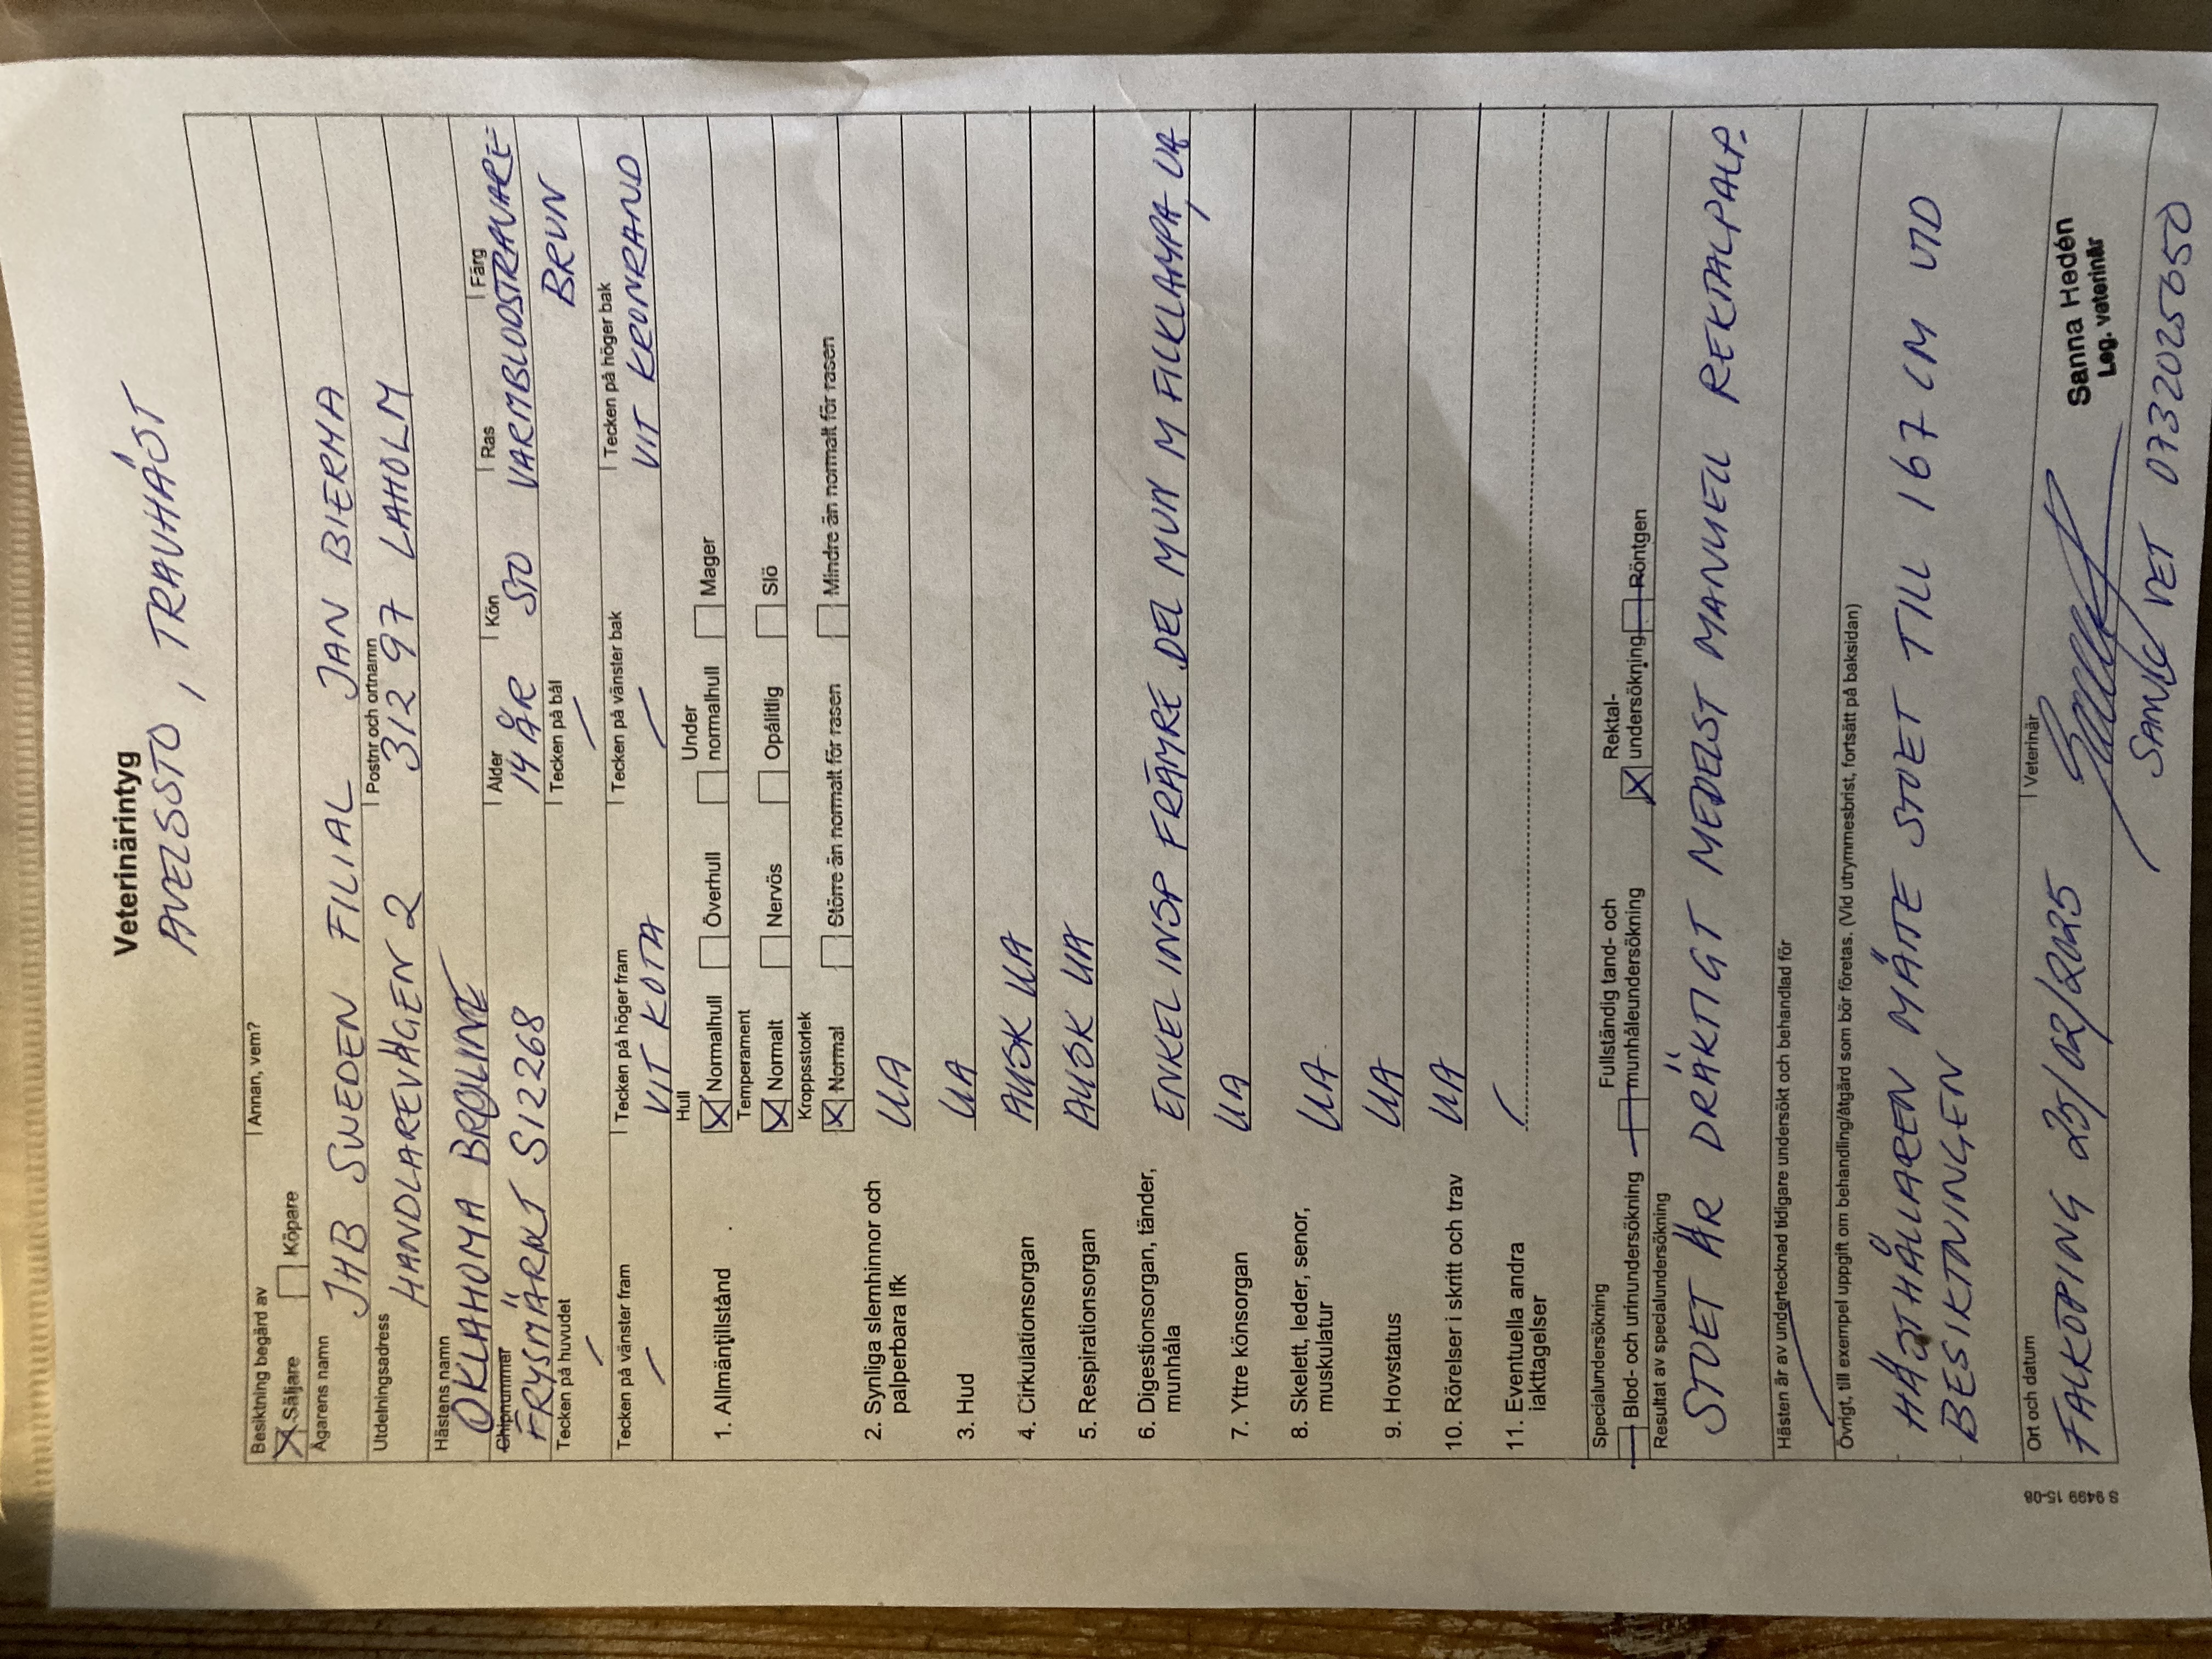 Veterinärintyg
AVELSSTO, TRAVHÄST
Besiktning begärd av
Annan, vem?
Säljare Köpare
Ägarens namn
JHB SWEDEN FILIAL JAN BIERMA
Utdelningsadress Postnr och ortnamn
HANDLAREVÄGEN 2 312 97 LAHOLM
Hästens namn Ålder Kön Ras Färg
OKLAHOMA BROLINE 14 ÅR STO VARMBLODSTRAVARE BRUN
Chipnummer
FRYSMÄRKT S12268
Tecken på huvudet Tecken på bål
Tecken på vänster fram Tecken på höger fram Tecken på vänster bak Tecken på höger bak
VIT KOTA VIT KRONRAND
Hull
1. Allmäntillstånd Normalhull Överhull Under normalhull Mager
Temperament
Normalt Nervös Opålitlig Slö
Kroppsstorlek
Normal Större än normalt för rasen Mindre än normalt för rasen
2. Synliga slemhinnor och
palperbara lfk UA
3. Hud UA
4. Cirkulationsorgan AUSK UA
5. Respirationsorgan AUSK UA
6. Digestionsorgan, tänder,
munhåla ENKEL INSP FRÄMRE DEL MUN M FICKLAMPA, UA
7. Yttre könsorgan UA
8. Skelett, leder, senor,
muskulatur UA
9. Hovstatus UA
10. Rörelser i skritt och trav UA
11. Eventuella andra
iakttagelser
Specialundersökning
Blod- och urinundersökning Fullständig tand- och munhåleundersökning Rektal-undersökning Röntgen
Resultat av specialundersökning
STOET ÄR DRÄKTIGT MEDELST MANUELL REKTALPALP.
Hästen är av undertecknad tidigare undersökt och behandlad för
Övrigt, till exempel uppgift om behandling/åtgärd som bör företas. (Vid utrymmesbrist, fortsätt på baksidan)
HÄSTHÅLLAREN MÄTE STOET TILL 167 CM VID
BESIKTNINGEN
Ort och datum Veterinär
FALKÖPING 25/02/2025
Sanna Hedén
Leg. veterinär
VET 0732025050
S 9499 15-08